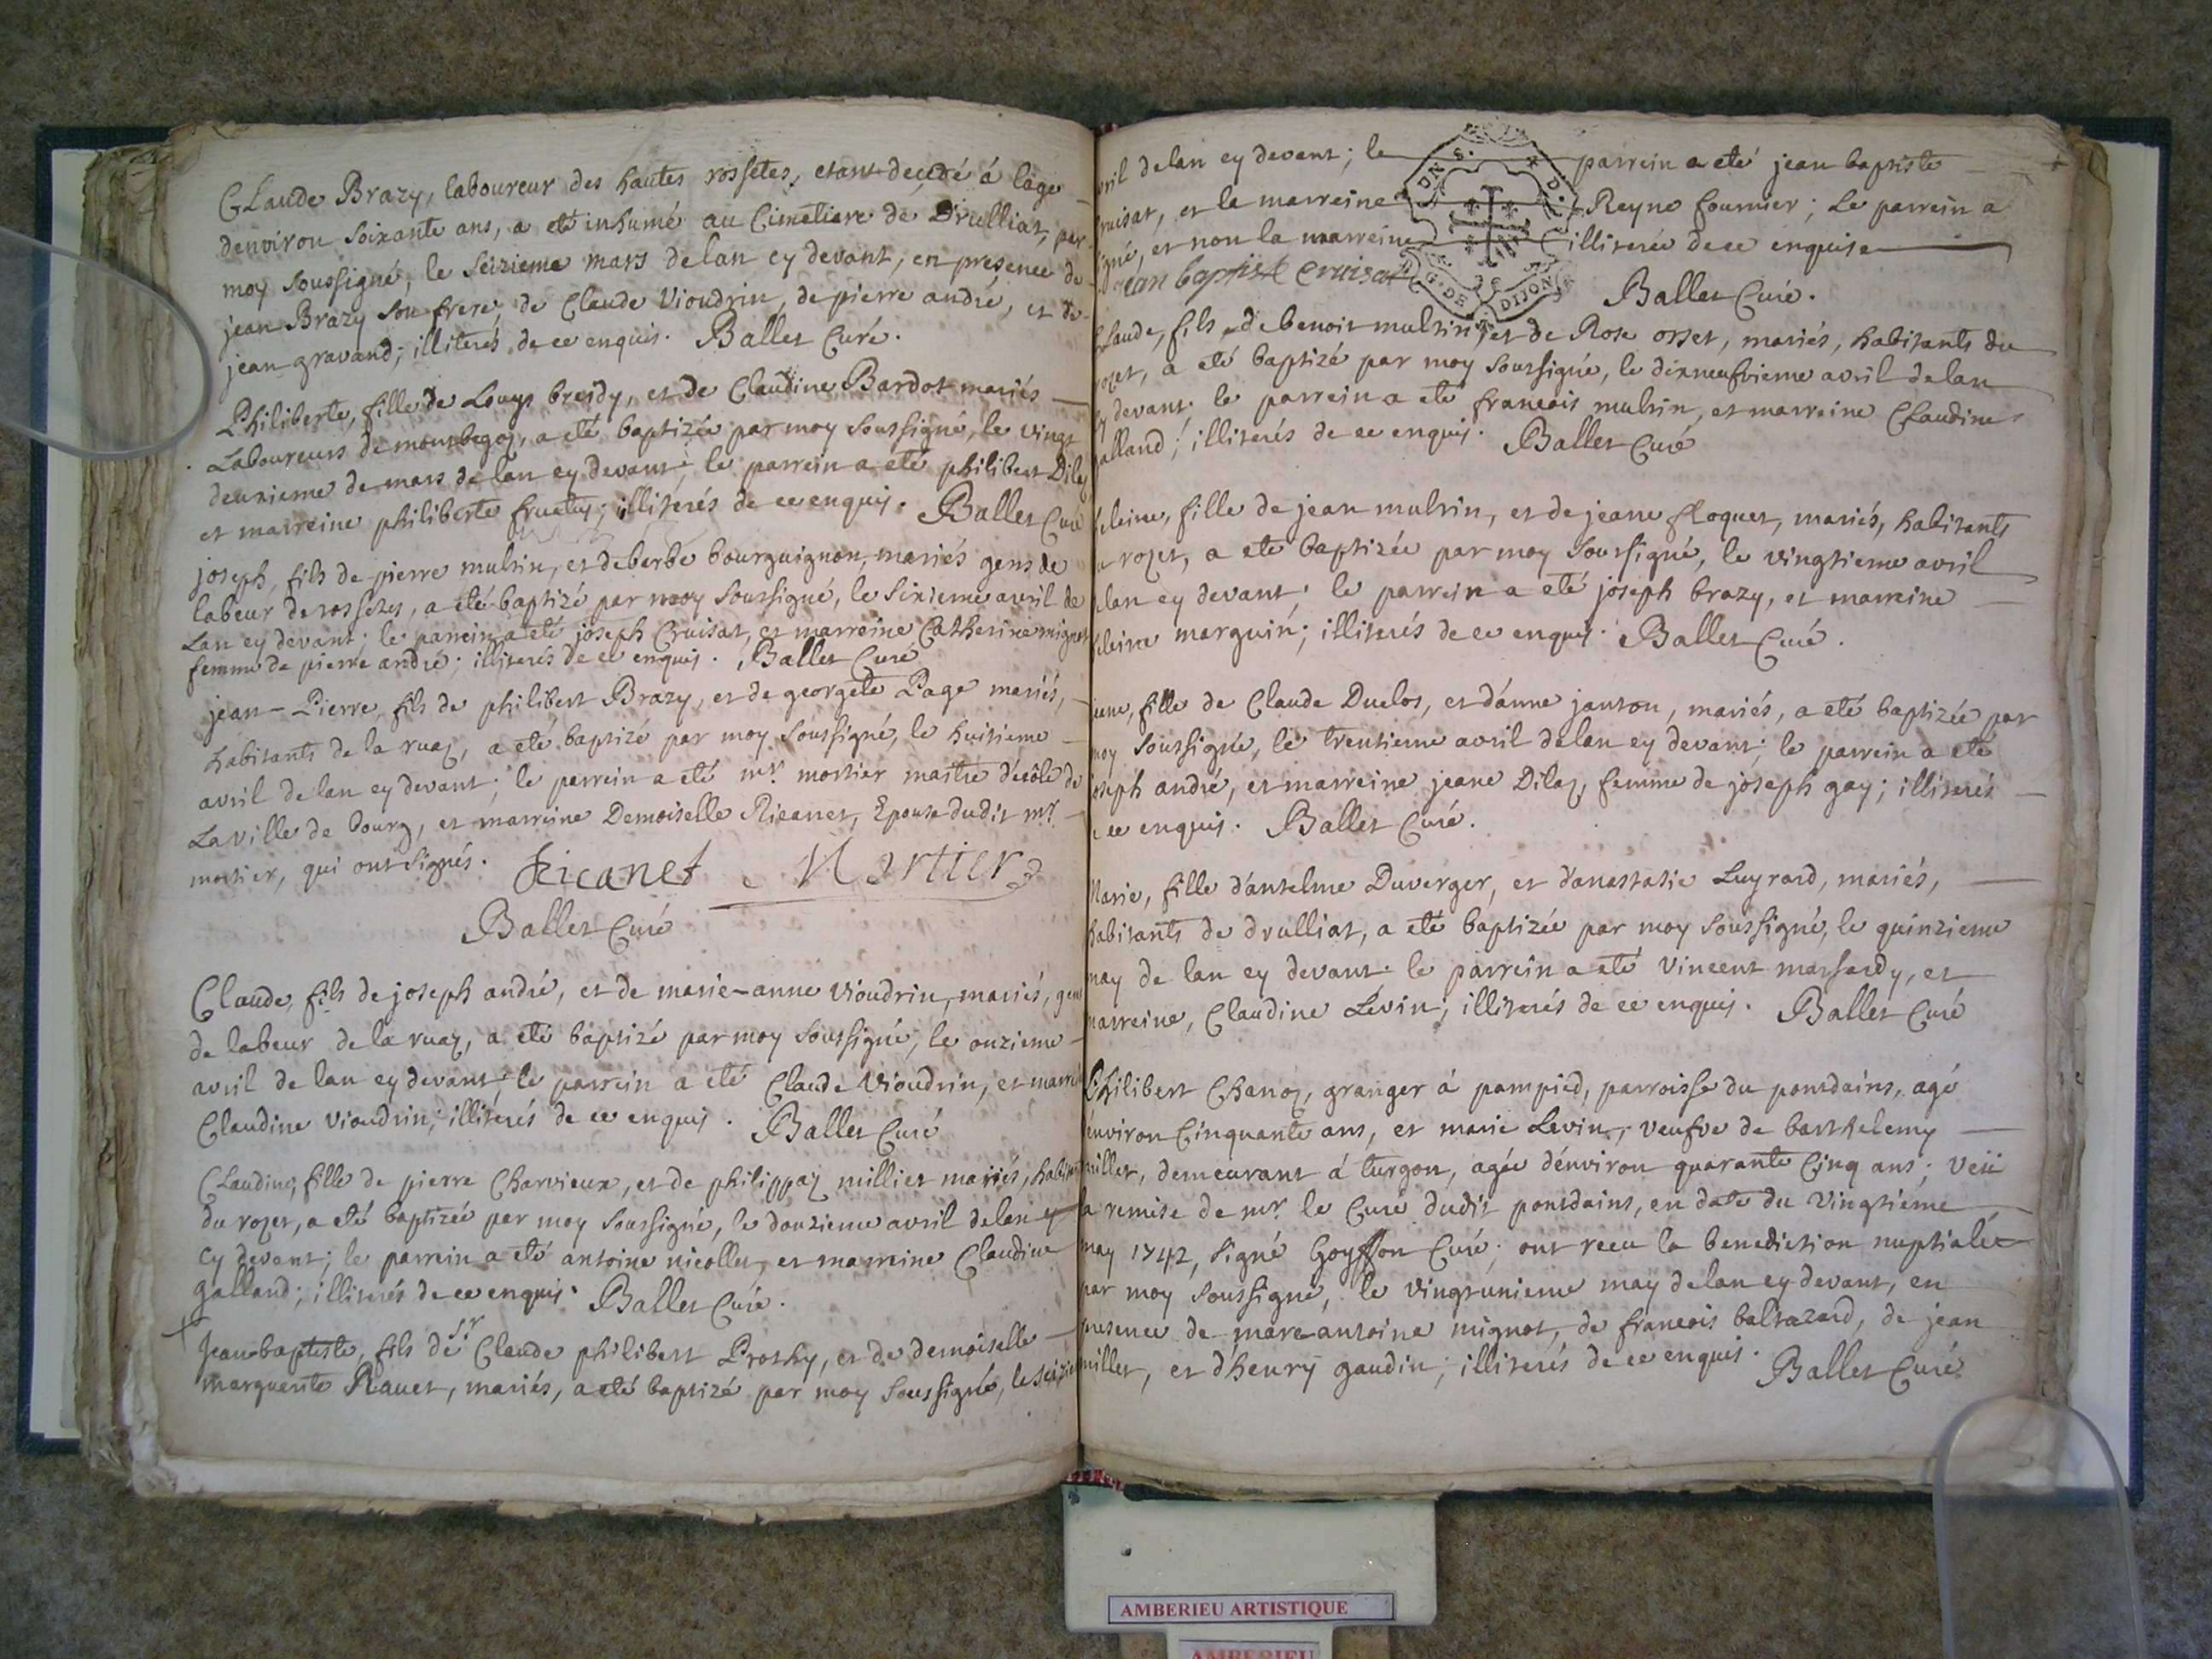 Claude Brazy, laboureur des hautes rossetes, etant decedé á láge
denviron soixante ans, a eté inhumé au Cimetiere de Drulliat, par
moy soussigné, le seizieme mars de lan cy devant, en presence de
jean Brazy son frere, de Claude Vioudrin, de pierre andré, et de
jean gravand; illiterés de ce enquis. Ballet Curé.
Philiberte, fille de Louys bresdy, et de Claudine Bardot mariés
Laboureurs de montbegoz, a eté baptizée par moy soussigné, le vingt
deuxieme de mars de lan cy devant; le parrein a eté philibert Dilaz
et marreine philiberte fructus; illiterés de ce enquis. Ballet Curé
joseph, fils de pierre multin, et deberbe bourguignon, mariés gens de
labeur de rossetes, a eté baptizé par moy soussigné, le sixieme avril de
Lan cy devant; le parrein a eté joseph Cruisat, et marreine Catherine mignot
femme de pierre andré; illiterés de ce enquis. Ballet Curé
jean-Pierre, fils de philibert Brazy, et de georgete Page mariés,
habitants de la ruaz, a eté baptizé par moy soussigné, le huitieme
avril de lan cy devant; le parrein a eté mr. mortier maitre d'ecôle de
La ville de bourg, et marreine Demoiselle Ricanet, Epouse dudit mr.
mortier, qui ont signés. Ricanet Mortier
Ballet Curé
Claude, fils de joseph andré, et de marie-anne vioudrin, mariés, gens
de labeur de la ruaz, a eté baptizé par moy soussigné, le onzieme
avril de lan cy devant; le parrein a eté Claude Vioudrin, et marreine
Claudine vioudrin; illiterés de ce enquis. Ballet Curé
Claudine, fille de pierre Charvieux, et de philippaz milliet mariés, habitants
du rozet, a eté baptizée par moy soussigné, le douzieme avril de lan
cy devant; le parrein a eté antoine nicollet, et marreine Claudine
galland; illiterés de ce enquis. Ballet Curé.
Jean baptiste, fils de sr Claude philibert Prothy, et de demoiselle
marguerite Ravet, mariés, a eté baptizé par moy soussigné, le seizieme
avril de lan cy devant; le parrein a eté jean baptiste
Cruisat, et la marreine Reyne fournier; Le parrein a
signé, et non la marreine illiterée de ce enquise
jean baptiste Cruisat Ballet Curé.
G. DE DIJON
Claude, fils de benoit multin, et de Rose orset, mariés, habitants du
rozet, a eté baptizé par moy soussigné, le dixneufvieme avril de lan
cy devant; le parrein a eté francois multin, et marreine Claudine
galland; illiterés de ce enquis. Ballet Curé
fille de jean multin, et de jeane floquet, mariés, habitants
rozet, a eté baptizée par moy soussigné, le vingtieme avril
lan cy devant; le parrein a eté joseph brazy, et marreine
marguin; illiterés de ce enquis. Ballet Curé.
fille de Claude Duclos, et dánne janton, mariés, a eté baptizée par
moy soussigné, le trentieme avril de lan cy devant; le parrein a eté
joseph andré, et marreine jeane Dilaz, femme de joseph gay; illiterés
ce enquis. Ballet Curé.
Marie, fille dántelme Duverger, et dánastasie Luyrard, mariés,
habitants de drulliat, a eté baptizée par moy soussigné, le quinzieme
may de lan cy devant; le parrein a eté Vincent massardy, et
marreine, Claudine Lévin; illiterés de ce enquis. Ballet Curé
Philibert Chanoz, granger á pampied, parroisse du pontdains, agé
denviron Cinquante ans, et marie Levin, veufve de barthelemy
millet, demeurant á turgon, agée dénviron quarante Cinq ans; veü
la remise de mr. le Curé dudit pontdains, en date du Vingtiéme
may 1742, signé Goyffon Curé; ont receu la benediction nuptiale
par moy soussigné, le vingtunieme may de lan cy devant, en
presence de marc-antoine mignot, de francois baltazard, de jean
millet, et d'henry gaudin; illiterés de ce enquis. Ballet Curé
AMBERIEU ARTISTIQUE
AMBERIEU